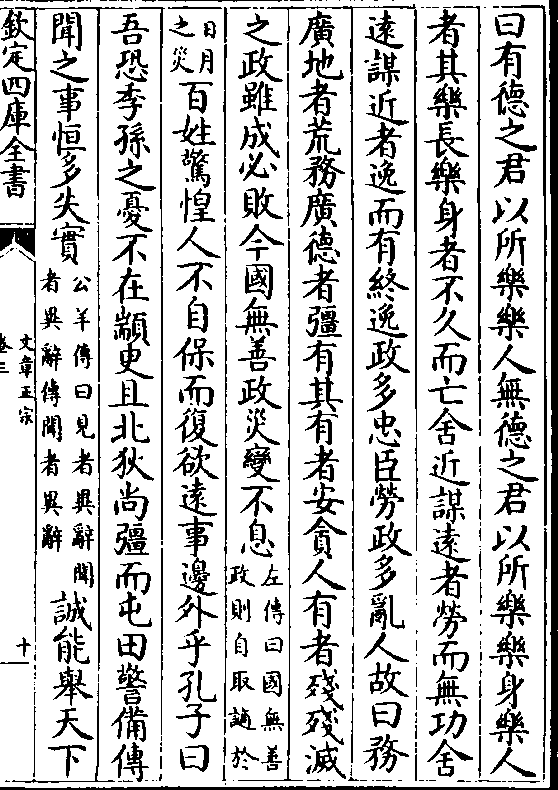 曰有德之君以所樂樂人無德之君以所樂樂身樂人
者其樂長樂身者不久而亡舍近謀遠者勞而無功舍
遠謀近者逸而有終逸政多忠臣勞政多亂人故曰務
廣地者荒務廣德者彊有其有者安貪人有者殘殘滅
之政雖成必敗今國無善政災變不息左傳曰國無善政則自取謫於
日月之災百姓驚惶人不自保而復欲遠事邊外乎孔子曰
吾恐季孫之憂不在顓臾且北狄尚彊而屯田警備傳
聞之事恒多失實公羊傳曰見者異辭聞者異辭傳聞者異辭誠能舉天下
欽定四庫全書
文章正宗
卷三
十